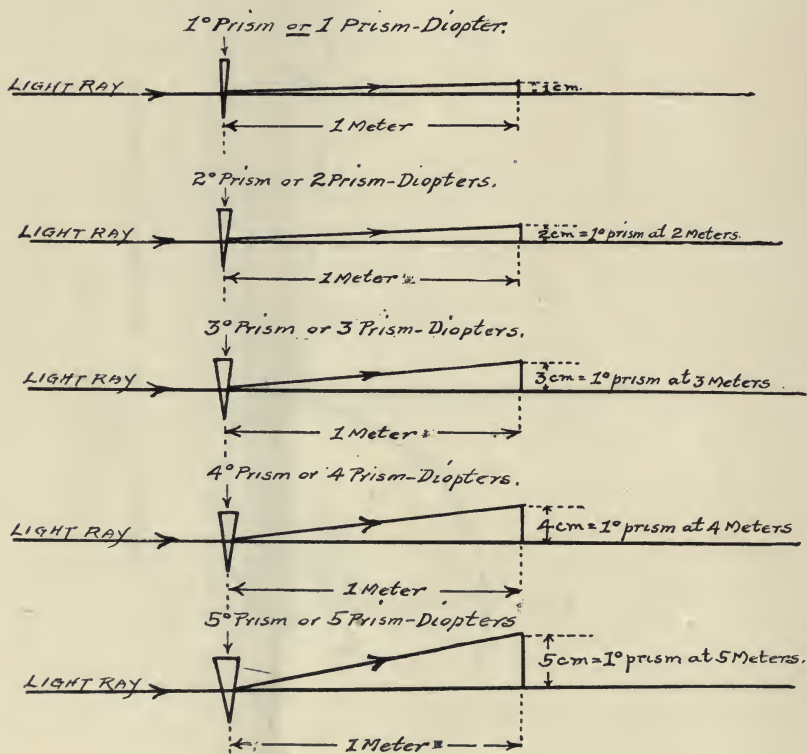 1° Prism or 1 Prism-Diopter.
LIGHT RAY
1 cm.
1 Meter
2° Prism or 2 Prism-Diopters.
LIGHT RAY
2 cm = 1° prism at 2 Meters.
1 Meter
3° Prism or 3 Prism-Diopters.
LIGHT RAY
3 cm = 1° prism at 3 Meters
1 Meter
4° Prism or 4 Prism-Diopters.
LIGHT RAY
4 cm = 1° prism at 4 Meters
1 Meter
5° Prism or 5 Prism-Diopters
LIGHT RAY
5 cm = 1° prism at 5 Meters.
1 Meter